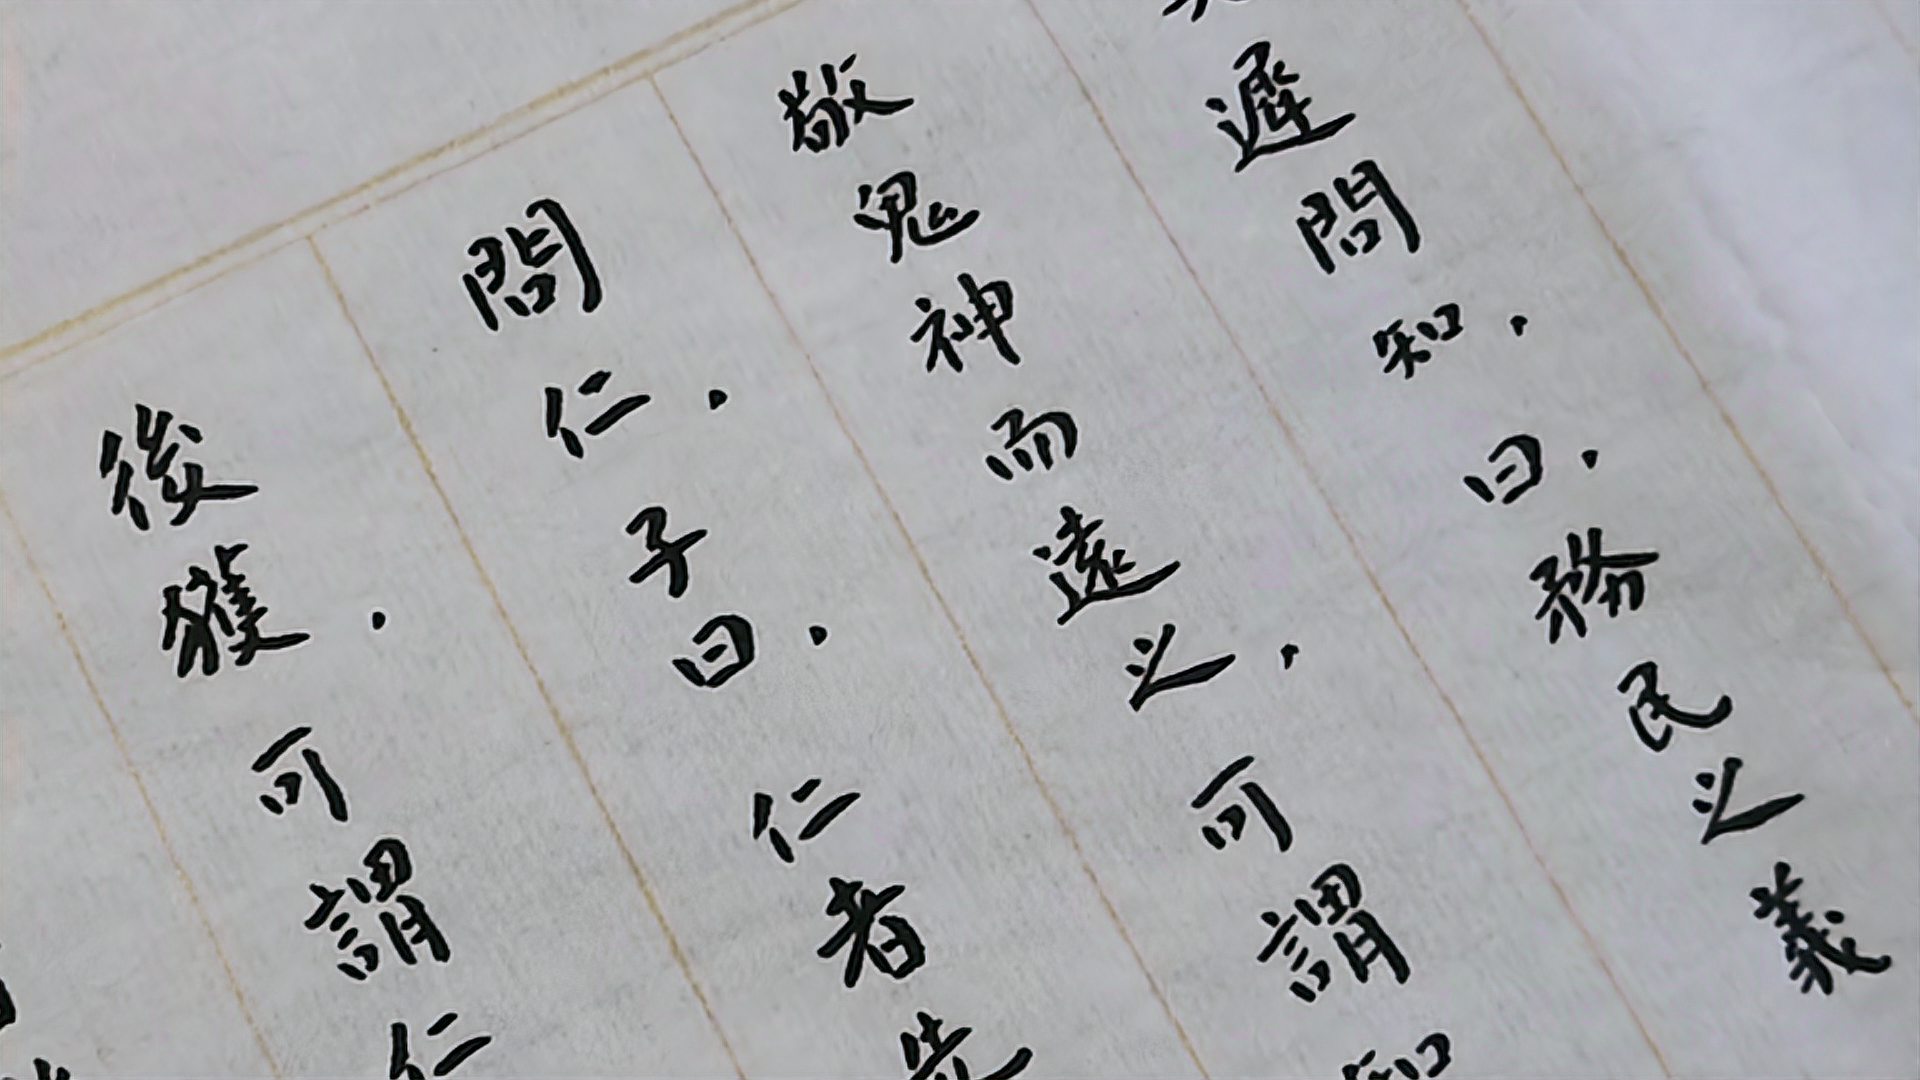 遲問知．曰．務民之義
敬鬼神而遠之．可謂知
問仁．子曰．仁者先
後獲．可謂仁